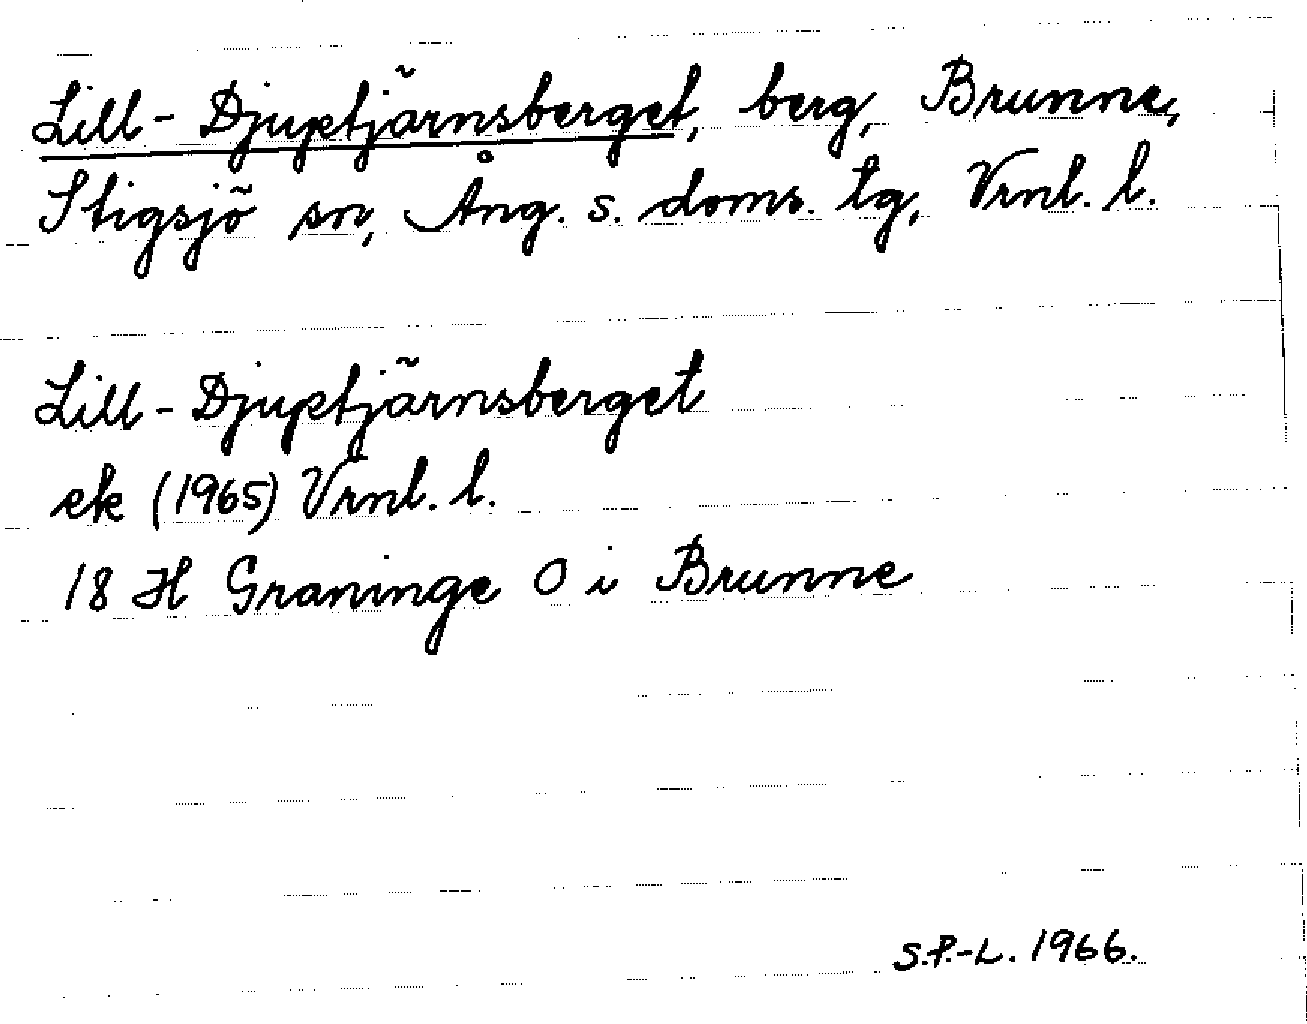 Lill-Djuptjärnsberget, berg, Brunne,
Stigsjö sn, Ång. s. doms. tg, Vrnl. l.
Lill-Djuptjärnsberget
ek (1965) Vrnl. l.
18 H Graninge O i Brunne
S.P.-L. 1966.